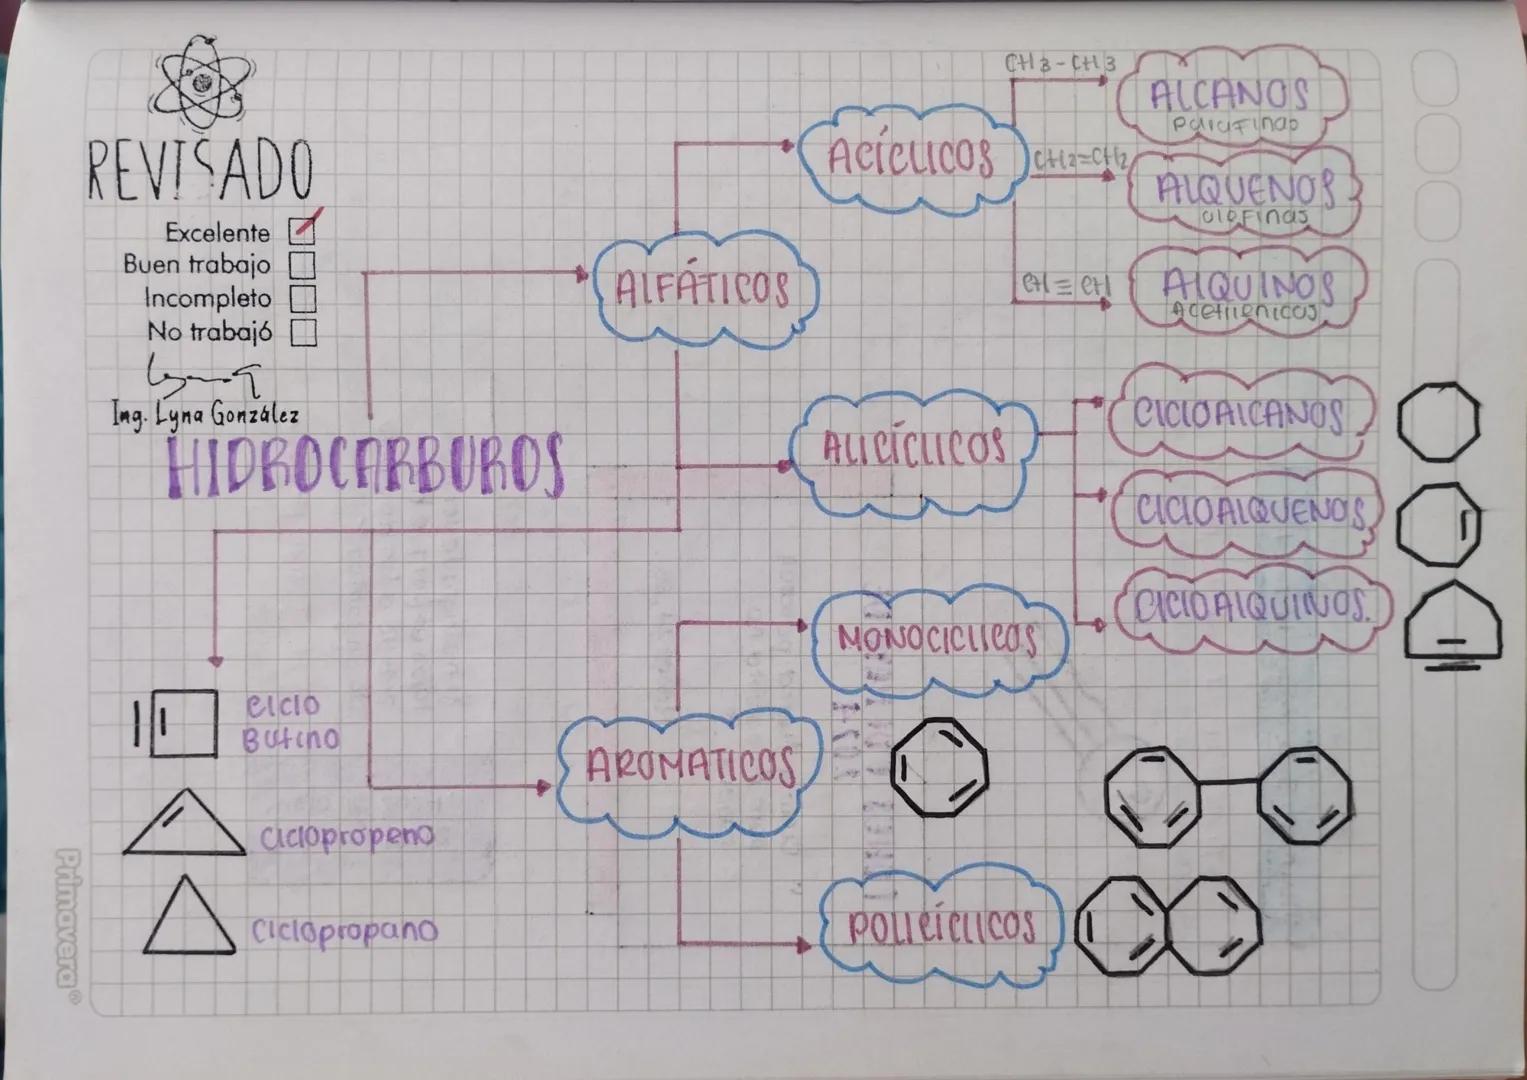 REVISADO
Excelente
Buen trabajo
Incompleto
No trabajó
Ing. Lyna González
HIDROCARBUROS
ALFÁTICOS
ACÍCLICOS
CH3-CH3
ALCANOS
Parafinas
CH2=CH2
ALQUENOS
Olefinas
CH≡CH
ALQUINOS
Acetilenicos
ALICÍCLICOS
CICLOALCANOS
CICLOALQUENOS
CICLOALQUINOS.
Ciclo
Butino
Ciclopropeno
Ciclopropano
AROMATICOS
MONOCICLICOS
POLICÍCLICOS
Primavera®